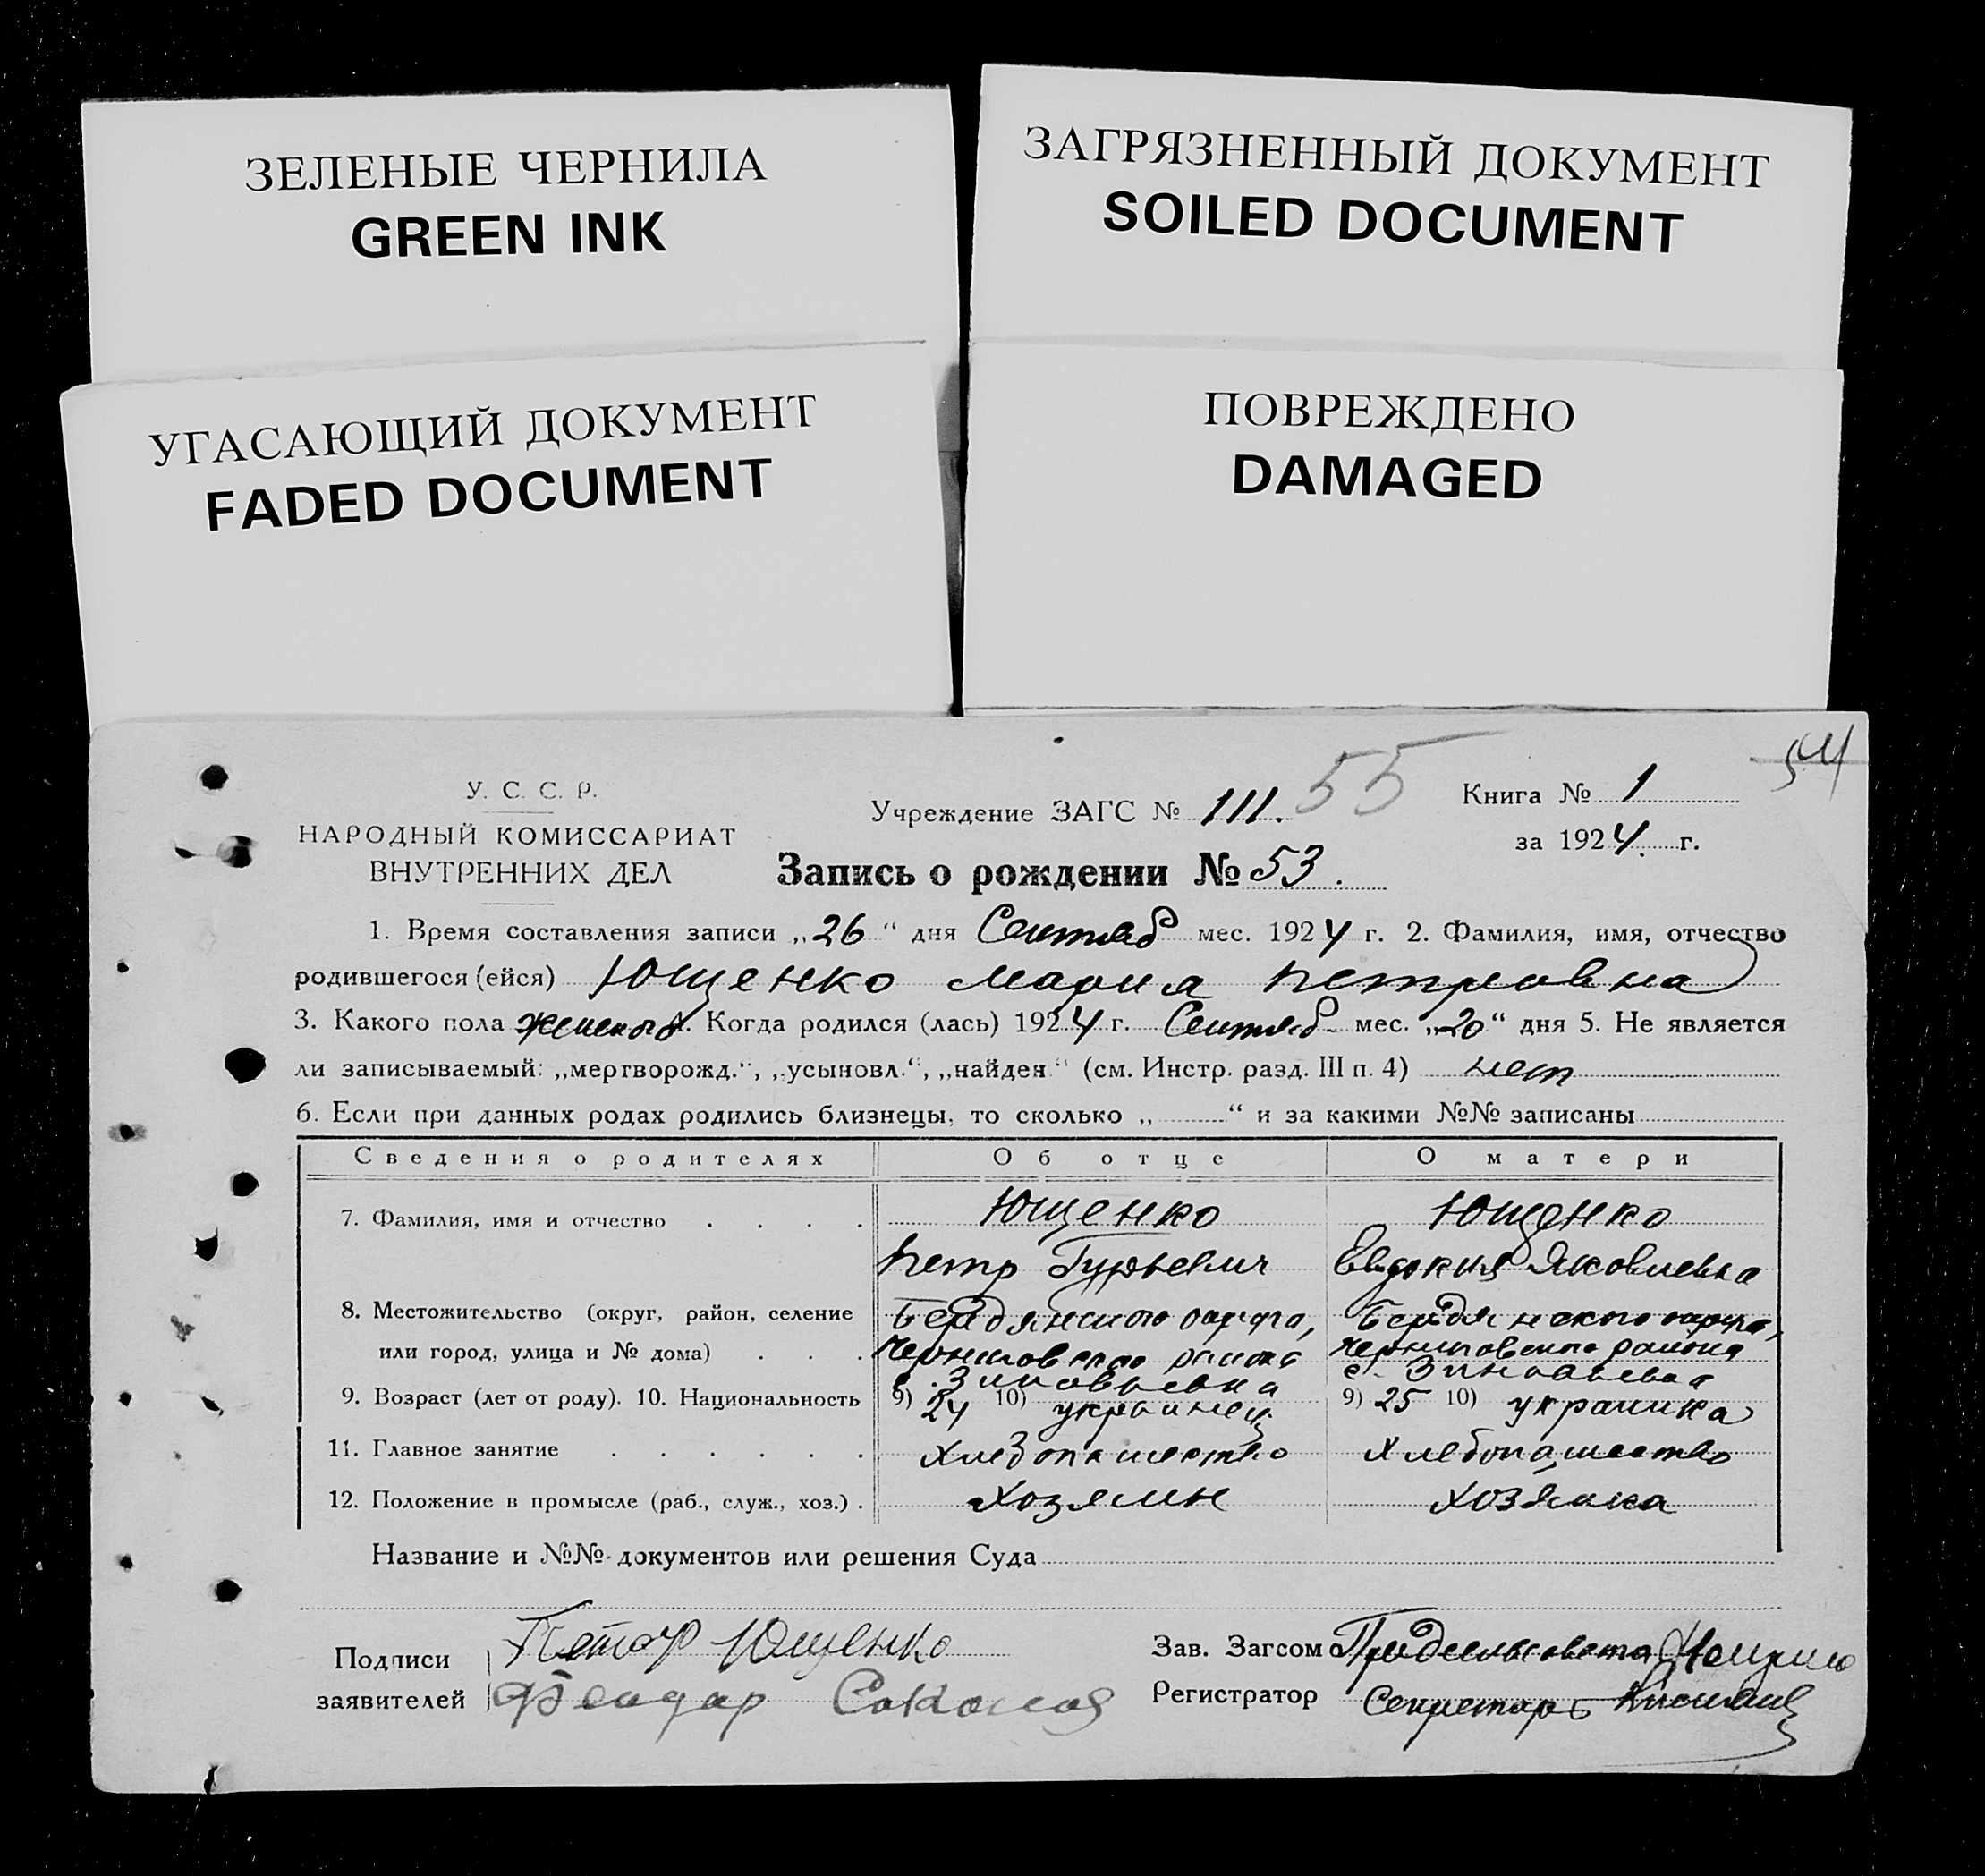 ЗЕЛЕНЫЕ ЧЕРНИЛА
GREEN INK
ЗАГРЯЗНЕННЫЙ ДОКУМЕНТ
SOILED DOCUMENT
УГАСАЮЩИЙ ДОКУМЕНТ
FADED DOCUMENT
ПОВРЕЖДЕНО
DAMAGED
54
У. С. С. Р.
НАРОДНЫЙ КОМИССАРИАТ
ВНУТРЕННИХ ДЕЛ
Учреждение ЗАГС № 111. 55
Книга № 1
за 1924 г.
Запись о рождении № 53.
1. Время составления записи „26“ дня Сентяб мес. 1924 г. 2. Фамилия, имя, отчество
родившегося (ейся) Ющенко Мария Петровна
3. Какого пола женского 4. Когда родился (лась) 1924 г. Сентяб мес. „20“ дня 5. Не является
ли записываемый: „мертворожд.“, „усыновл.“, „найден“ (см. Инстр. разд. III п. 4) нет
6. Если при данных родах родились близнецы, то сколько „ “ и за какими №№ записаны
Сведения о родителях Об отце О матери
7. Фамилия, имя и отчество Ющенко Ющенко
Петр Гурьевич Евдокия Яковлевна
8. Местожительство (округ, район, селение Бердянского округа, Бердянского округа,
или город, улица и № дома) Черниговского района Черниговского района
с. Зиновьевка с. Зиновьевка
9. Возраст (лет от роду). 10. Национальность 9) 24 10) украинец 9) 25 10) украинка
11. Главное занятие Хлебопашество Хлебопашество
12. Положение в промысле (раб., служ., хоз.) Хозяин Хозяйка
Название и №№ документов или решения Суда
Подписи Петор Ющенко
заявителей
Зав. Загсом Предсельсовета
Регистратор Секретарь